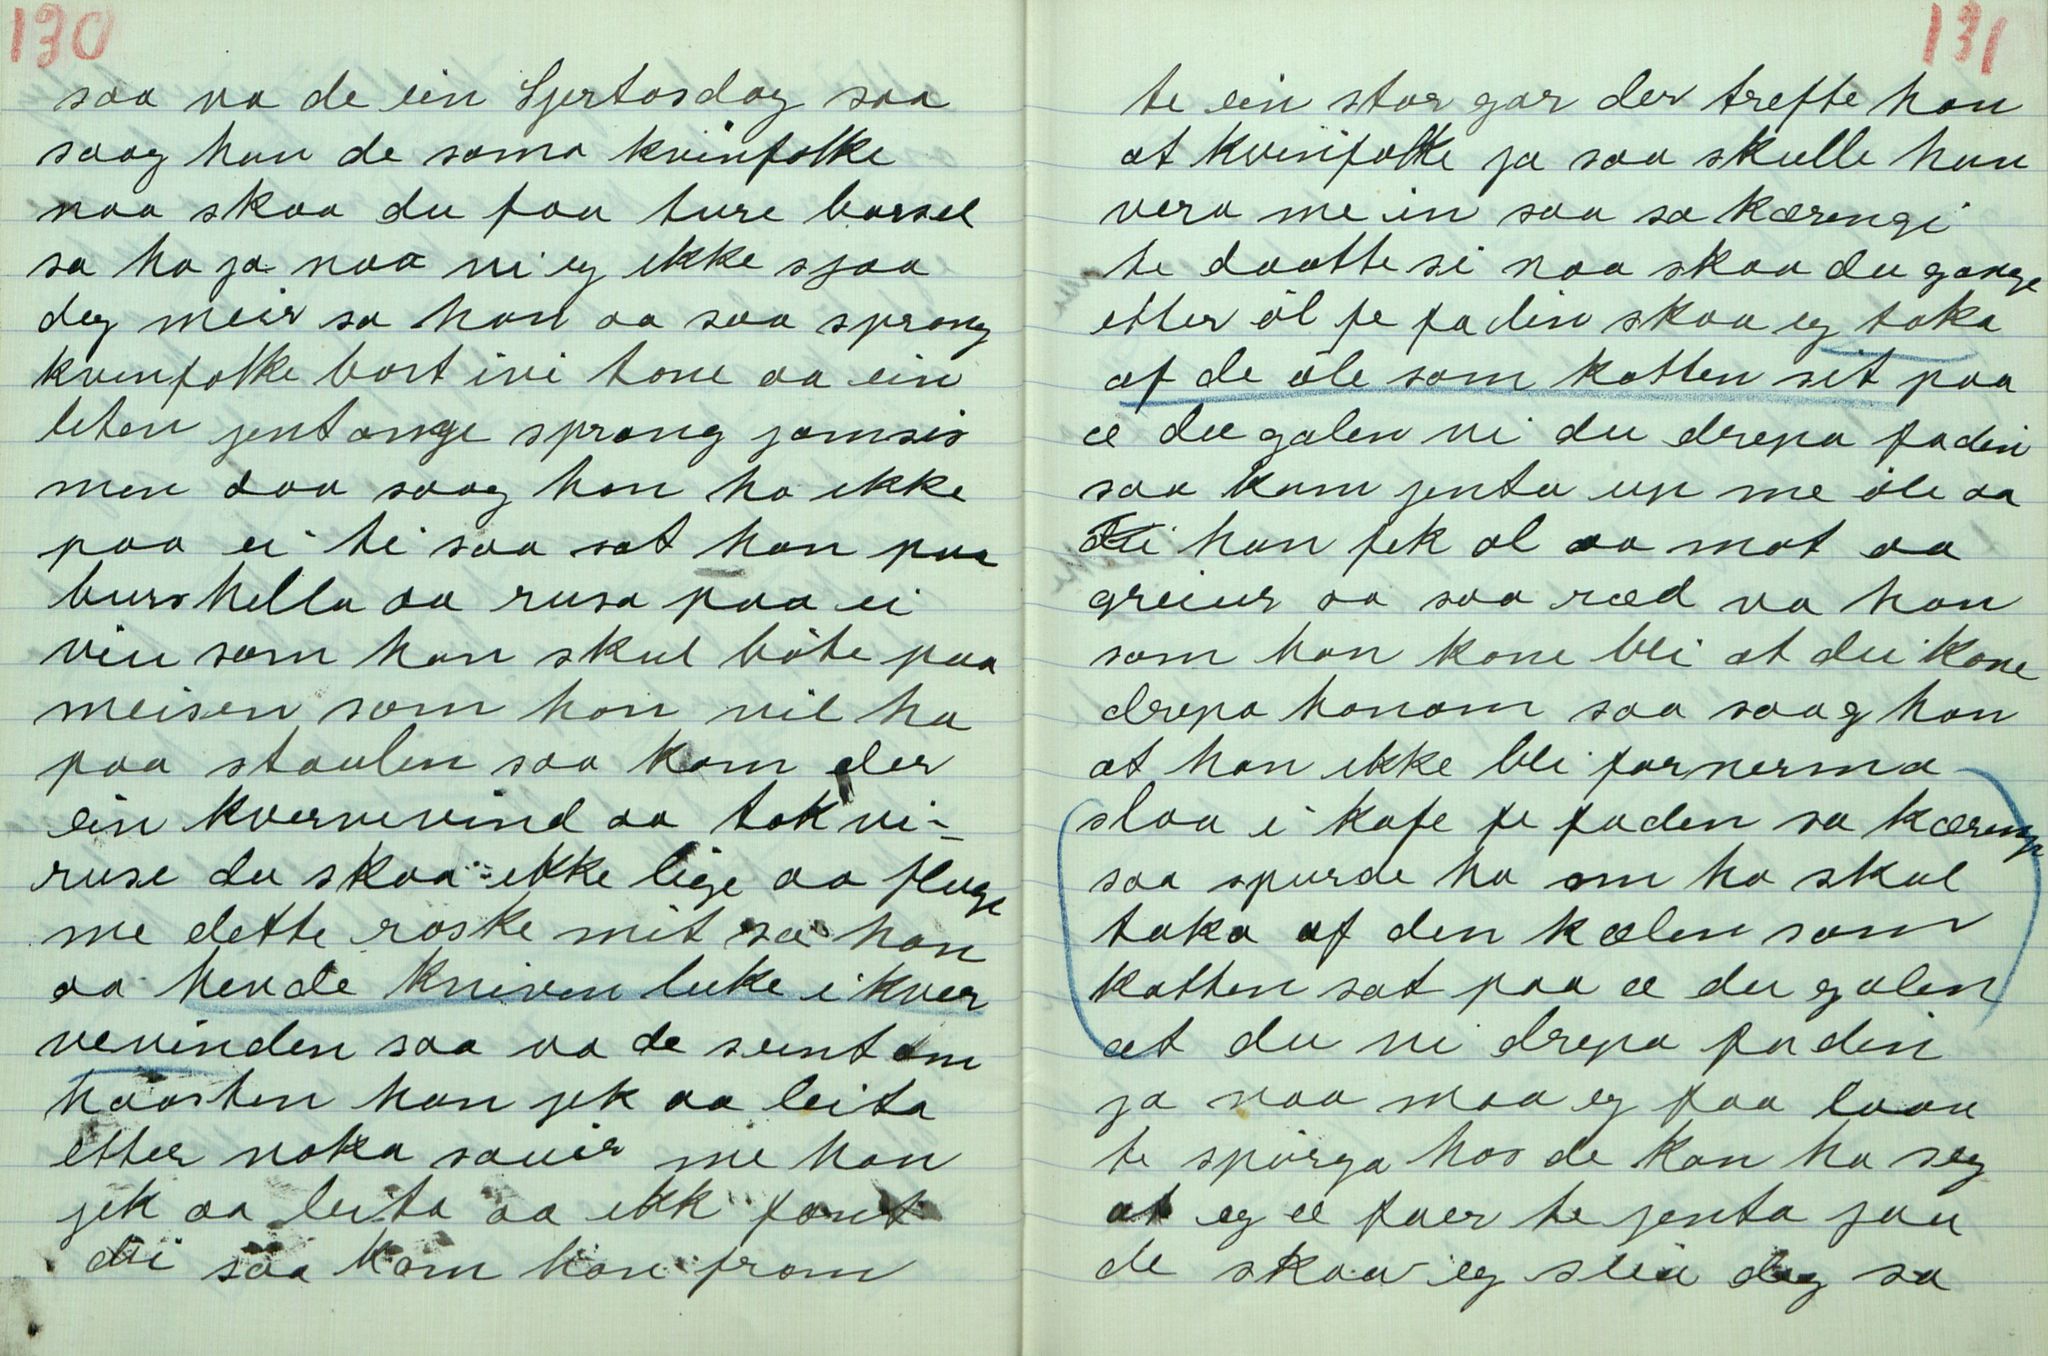 130
saa va de ein Sjertosdag saa
saag han de sama kvinfolke
naa skaa du faa ture barsel
sa ha ja naa vi eg ikke sjaa
deg meir sa han aa saa sprang
kvinfolke bort ivi tone aa ein
liten jentonge sprang jamsis
men daa saag han ha ikke
paa ei ti saa sat han paa
burshella aa rusa paa ei
viu som han skul böte paa
meisen som han vil ha
paa staulen saa kom der
ein kvervevind aa tok vi-
ruse du skaa ikke lige aa fluge
me dette raske mit sa han
aa hende kniven luke i kver
vevinden saa va de seint om
haasten han jek aa leita
etter noka sauir me han
jek aa leita aa ikk fant
dei saa kom han fram
131
te ein stor gar der trefte han
at kvinfolke ja saa skulle han
vera me in saa sa kærengi
te daatte si naa skaa du gange
etter öl fe fa din skaa eg taka
af de öle som katten sit paa
æ du galen vi du drepa fadin
saa kom jenta up me öle aa
han fek öl aa mat aa
greiur sa saa ræd va han
som han kone bli at dei kone
drepa honom saa saag han
at han ikke blei fornerma
slaa i kafe fe faden sa kærengi
saa spurde ha om ha skul
taka af den kælen som
katten sat paa æ du galen
at du vi drepa fadin
ja naa maa eg faa laav
te spörga hos de kan ha seg
at eg æ faer te jenta jau
de skaa eg seia deg sa